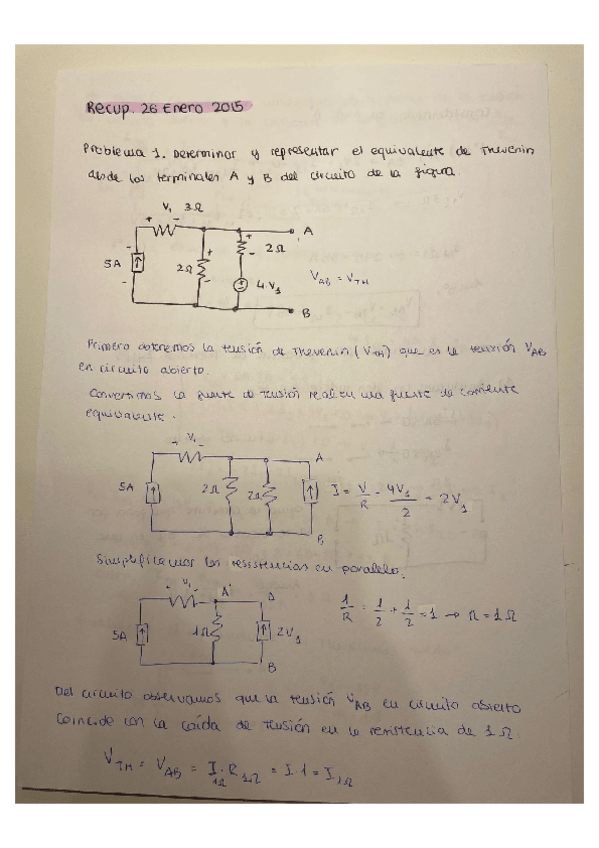 Recup. 26 Enero 2015
Problema 1. Determinar y representar el equivalente de Thevenin
desde los terminales A y B del circuito de la figura.
V₁ 3Ω
+ -
A
+
2Ω
-
5A
2Ω
+
-
4·V₁
V_AB = V_TH
B
Primero obtenemos la tensión de Thevenin (V_TH) que es la tensión V_AB
en circuito abierto.
Convertimos la fuente de tensión real en una fuente de corriente
equivalente.
+ V₁ -
A
5A
2Ω
2Ω
I = V/R = 4V₁/2 = 2V₁
B
Simplificamos las resistencias en paralelo.
+ V₁ -
A'
A
5A
1Ω
2V₁
1/R = 1/2 + 1/2 = 1 → R = 1Ω
B
Del circuito observamos que la tensión V_AB en circuito abierto
coincide con la caída de tensión en la resistencia de 1Ω.
V_TH = V_AB = I_1Ω · R_1Ω = I · 1 = I_1Ω